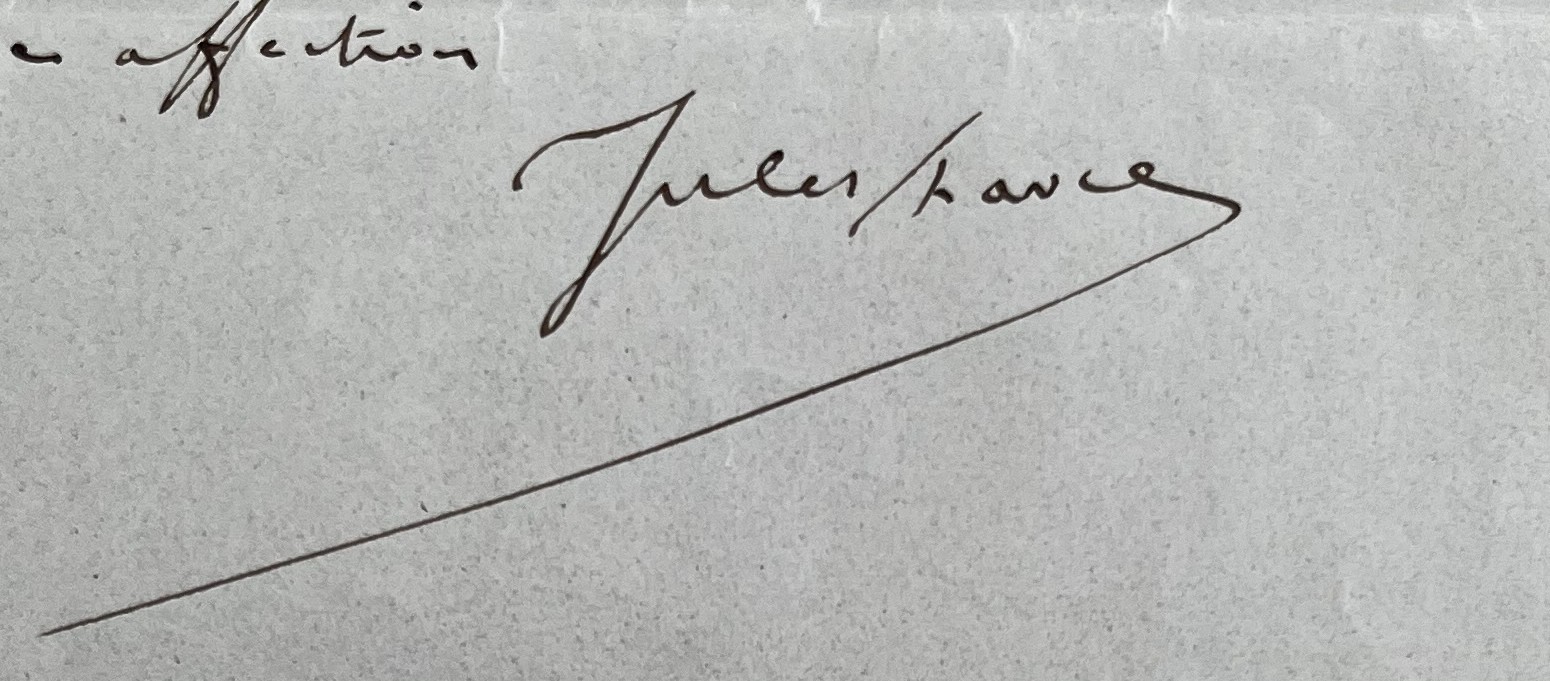 affection
Jules Favre